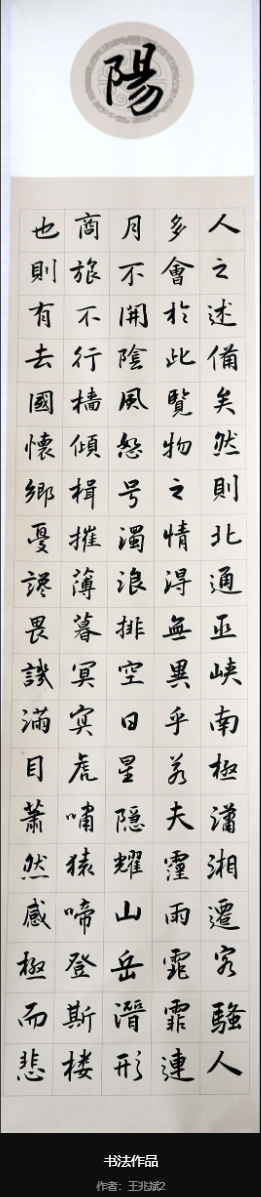 陽
人之述備矣然則北通巫峽南極瀟湘遷客騷人
多會於此覽物之情得無異乎若夫霪雨霏霏連
月不開陰風怒号濁浪排空日星隐耀山岳潛形
商旅不行檣傾楫摧薄暮冥冥虎嘯猿啼登斯楼
也則有去國懷鄉憂讒畏譏滿目蕭然感極而悲
书法作品
作者：王兆斌2